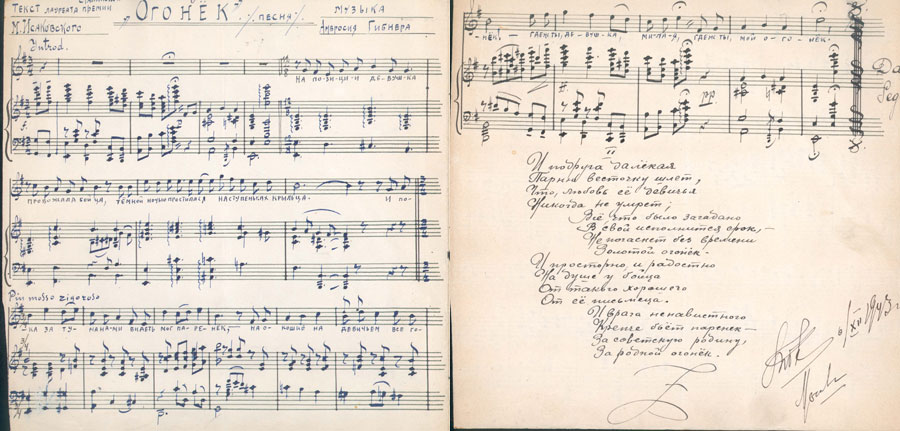 Текст лауреата премии
М. Исаковского
„Огонёк"
/песня/
Музыка
Амвросия Гибнера
Introd.
На по-зи-ци-и де-вуш-ка
провожала бойца, темной ночью простилася на ступеньках крыльца. И по-
Piu mosso rigoroso
ка за ту-на-на-ми видеть мог па-ре-нек, на о-кошко на девичьем все го-
-нёк. — Где ж ты, де-вуш-ка, ми-ла-я, где ж ты, мой о-го-нёк.
pp
II
И подруга далекая
Парню весточку шлет,
Что любовь её девичья
Никогда не умрет;
Всё что было загадано
В свой исполнится срок, —
Не погаснет без времени
Золотой огонёк.
И просторно и радостно
На душе у бойца
От такого хорошего
От её письмеца.
И врага ненавистного
Крепче бьёт паренек —
За советскую родину,
За родной огонёк.
6/XII 1943 г.